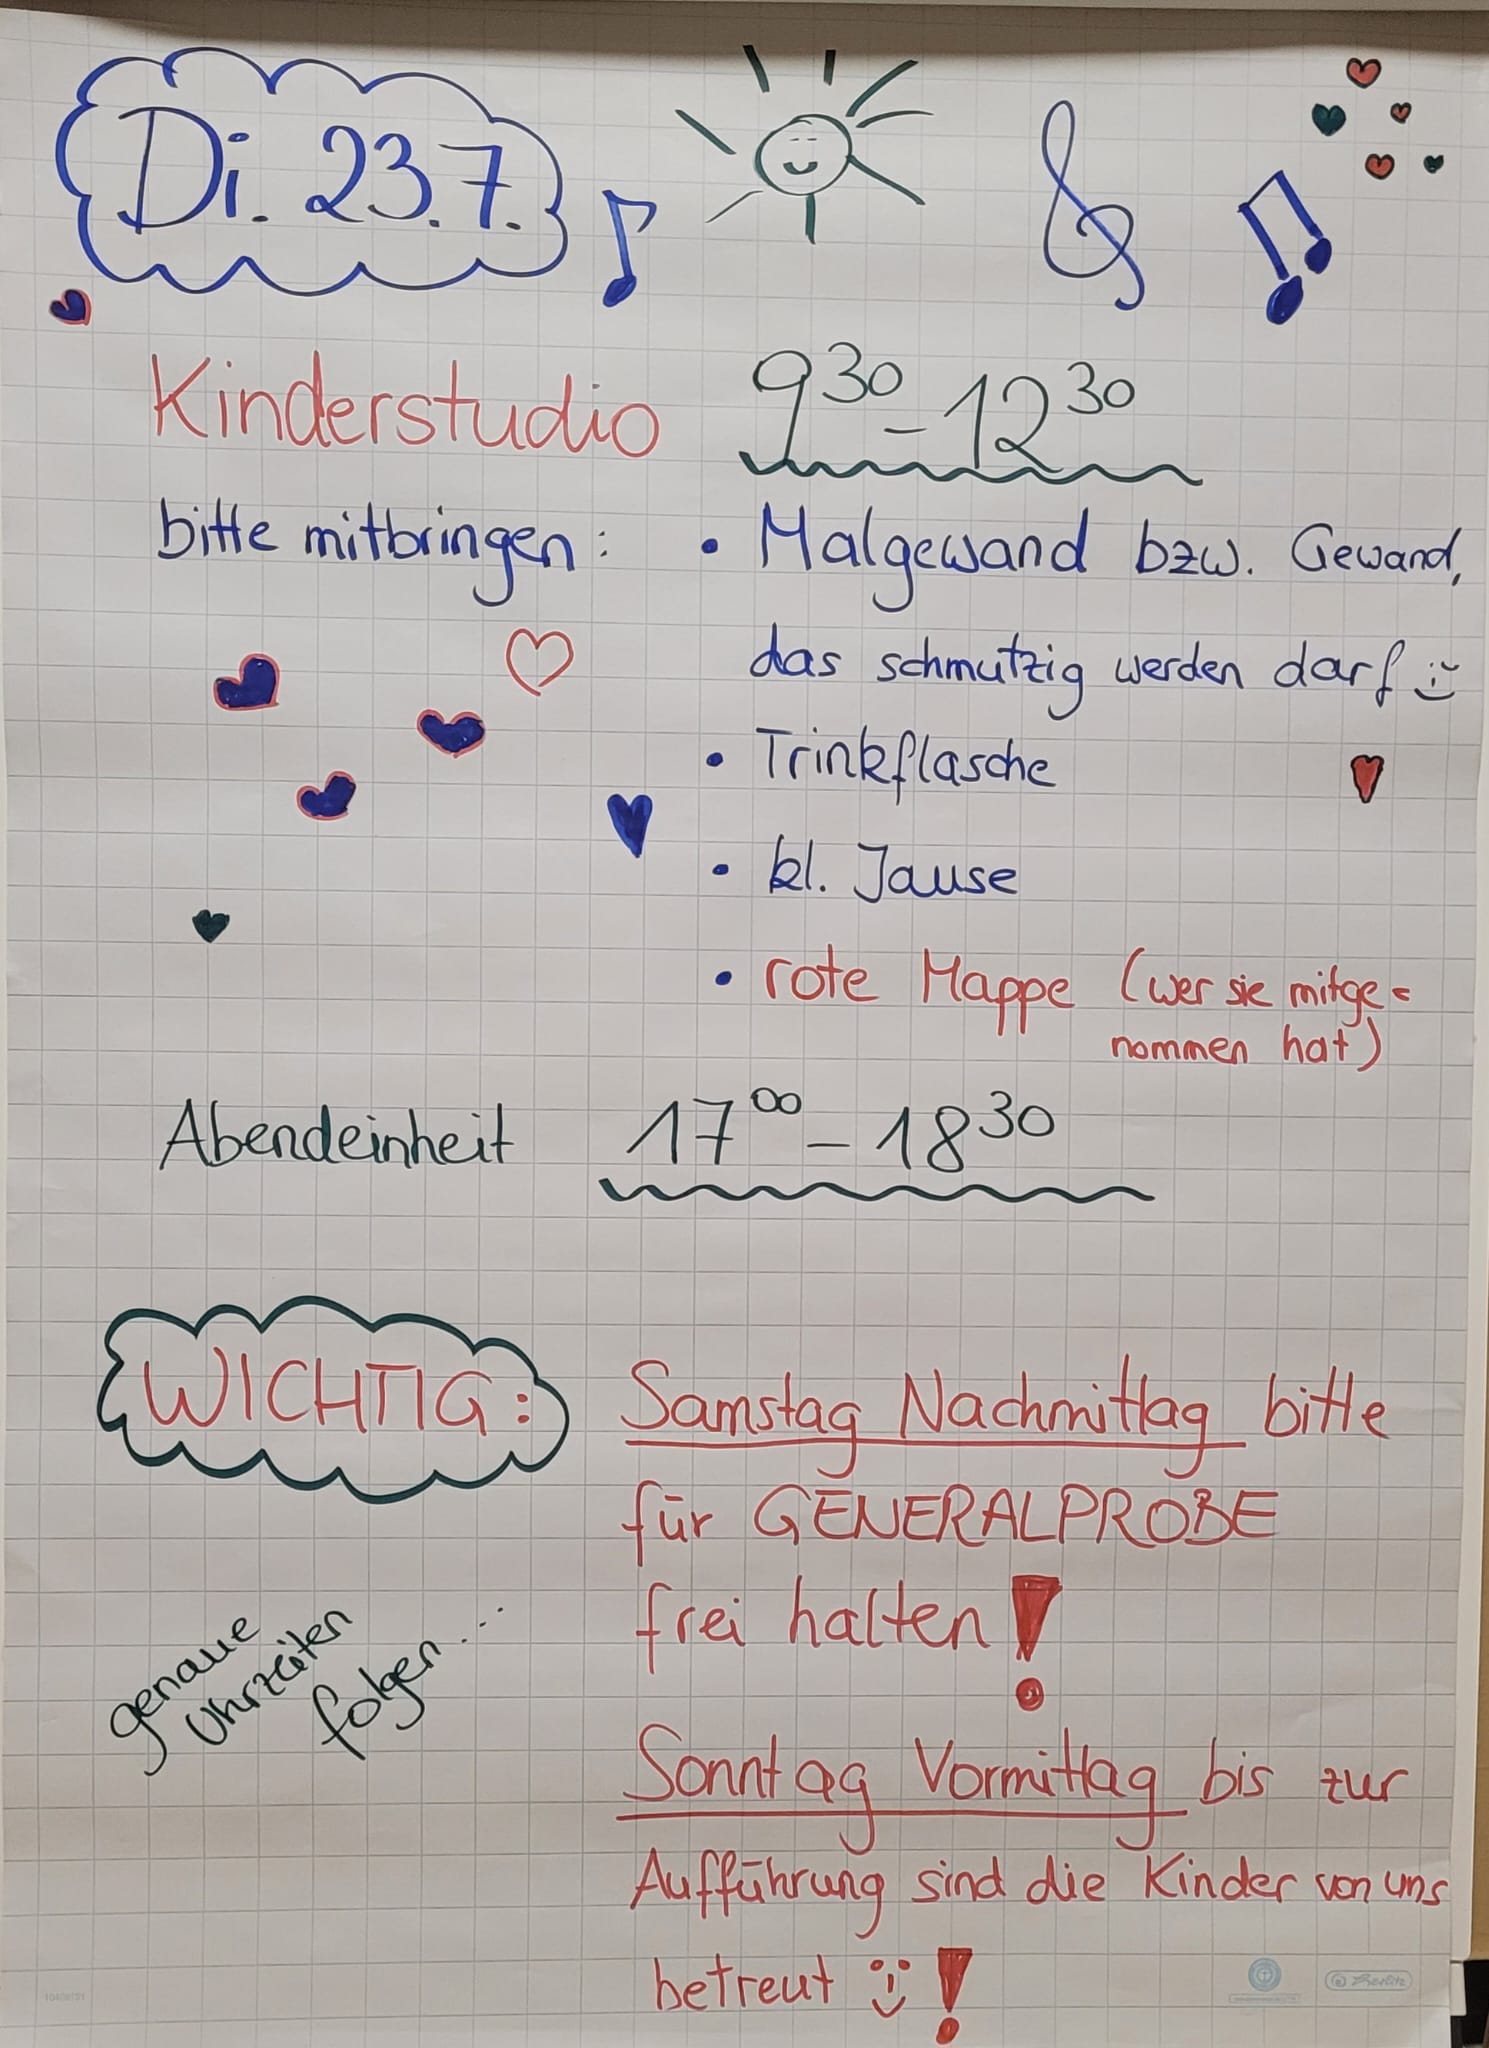 Di. 23.7.
Kinderstudio 9³⁰ - 12³⁰
bitte mitbringen: • Malgewand bzw. Gewand,
das schmutzig werden darf
• Trinkflasche
• kl. Jause
• rote Mappe (wer sie mitge=
nommen hat)
Abendeinheit 17⁰⁰ - 18³⁰
WICHTIG: Samstag Nachmittag bitte
für GENERALPROBE
frei halten!
genaue
Uhrzeiten
folgen...
Sonntag Vormittag bis zur
Aufführung sind die Kinder von uns
betreut :) !
Berlitz